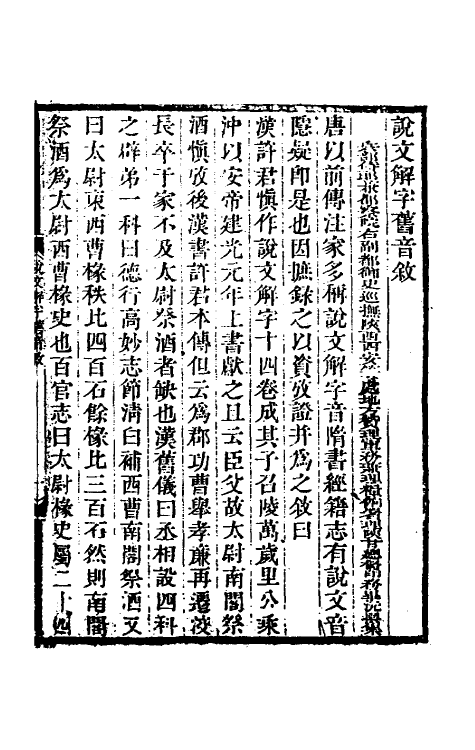 說文解字舊音敘
兵部侍郎兼都察院右副都御史巡撫陝西
唐以前傳注家多稱說文解字音隋書經籍志有說文音
隱疑卽是也因摭錄之以資攷證并爲之敘曰
漢許君愼作說文解字十四卷成其子召陵萬歲里公乘
沖以安帝建光元年上書獻之且云臣父故太尉南閣祭
酒愼攷後漢書許君本傳但云爲郡功曹舉孝廉再遷洨
長卒于家不及太尉祭酒者缺也漢舊儀曰丞相設四科
之辟弟一科曰德行高妙志節淸白補西曹南閤祭酒又
曰太尉東西曹掾秩比四百石餘掾比三百石然則南閣
祭酒爲太尉西曹掾史也百官志曰太尉掾史屬二十四
說文解字舊音敘